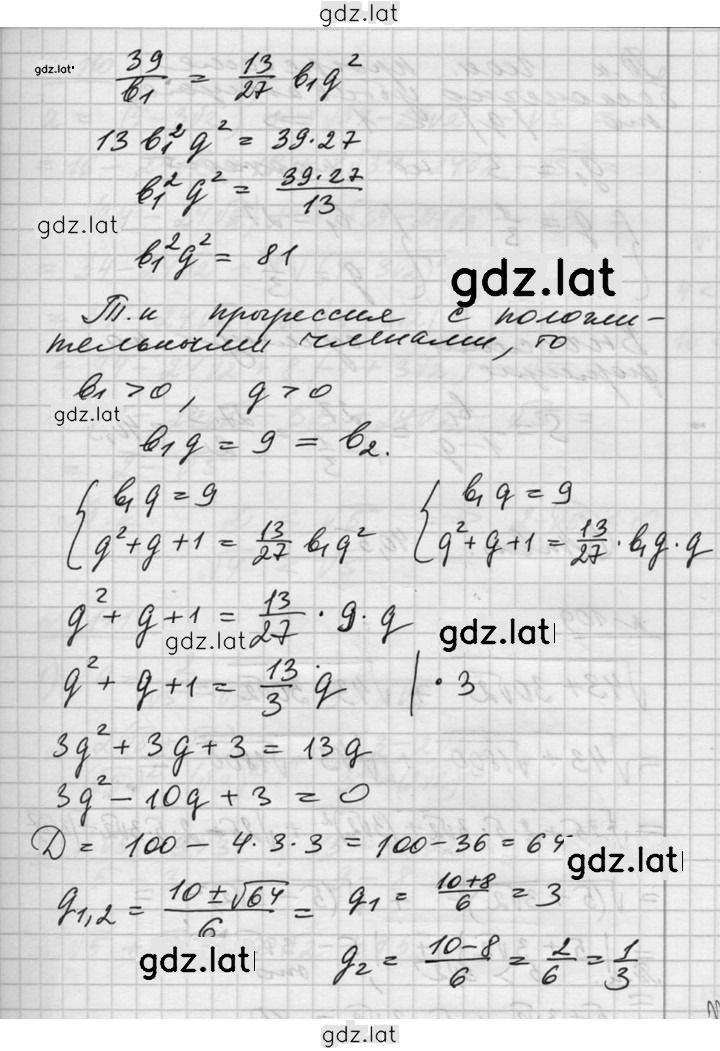 gdz.lat
gdz.lat
39/b₁ = 13/27 b₁q²
13 b₁² q² = 39·27
b₁² q² = 39·27/13
gdz.lat
b₁²q² = 81
gdz.lat
Т.к прогрессия с положи-
тельными членами, то
b₁ > 0, q > 0
gdz.lat
b₁ q = 9 = b₂.
{ b₁ q = 9
q² + q + 1 = 13/27 b₁q²
{ b₁ q = 9
q² + q + 1 = 13/27 · b₁q · q
q² + q + 1 = 13/27 · 9 · q
gdz.lat
gdz.lat
q² + q + 1 = 13/3 q | · 3
3q² + 3q + 3 = 13q
3q² - 10q + 3 = 0
D = 100 - 4·3·3 = 100 - 36 = 64
gdz.lat
q₁,₂ = 10 ± √64/6 = q₁ = 10+8/6 = 3
gdz.lat
q₂ = 10-8/6 = 2/6 = 1/3
gdz.lat